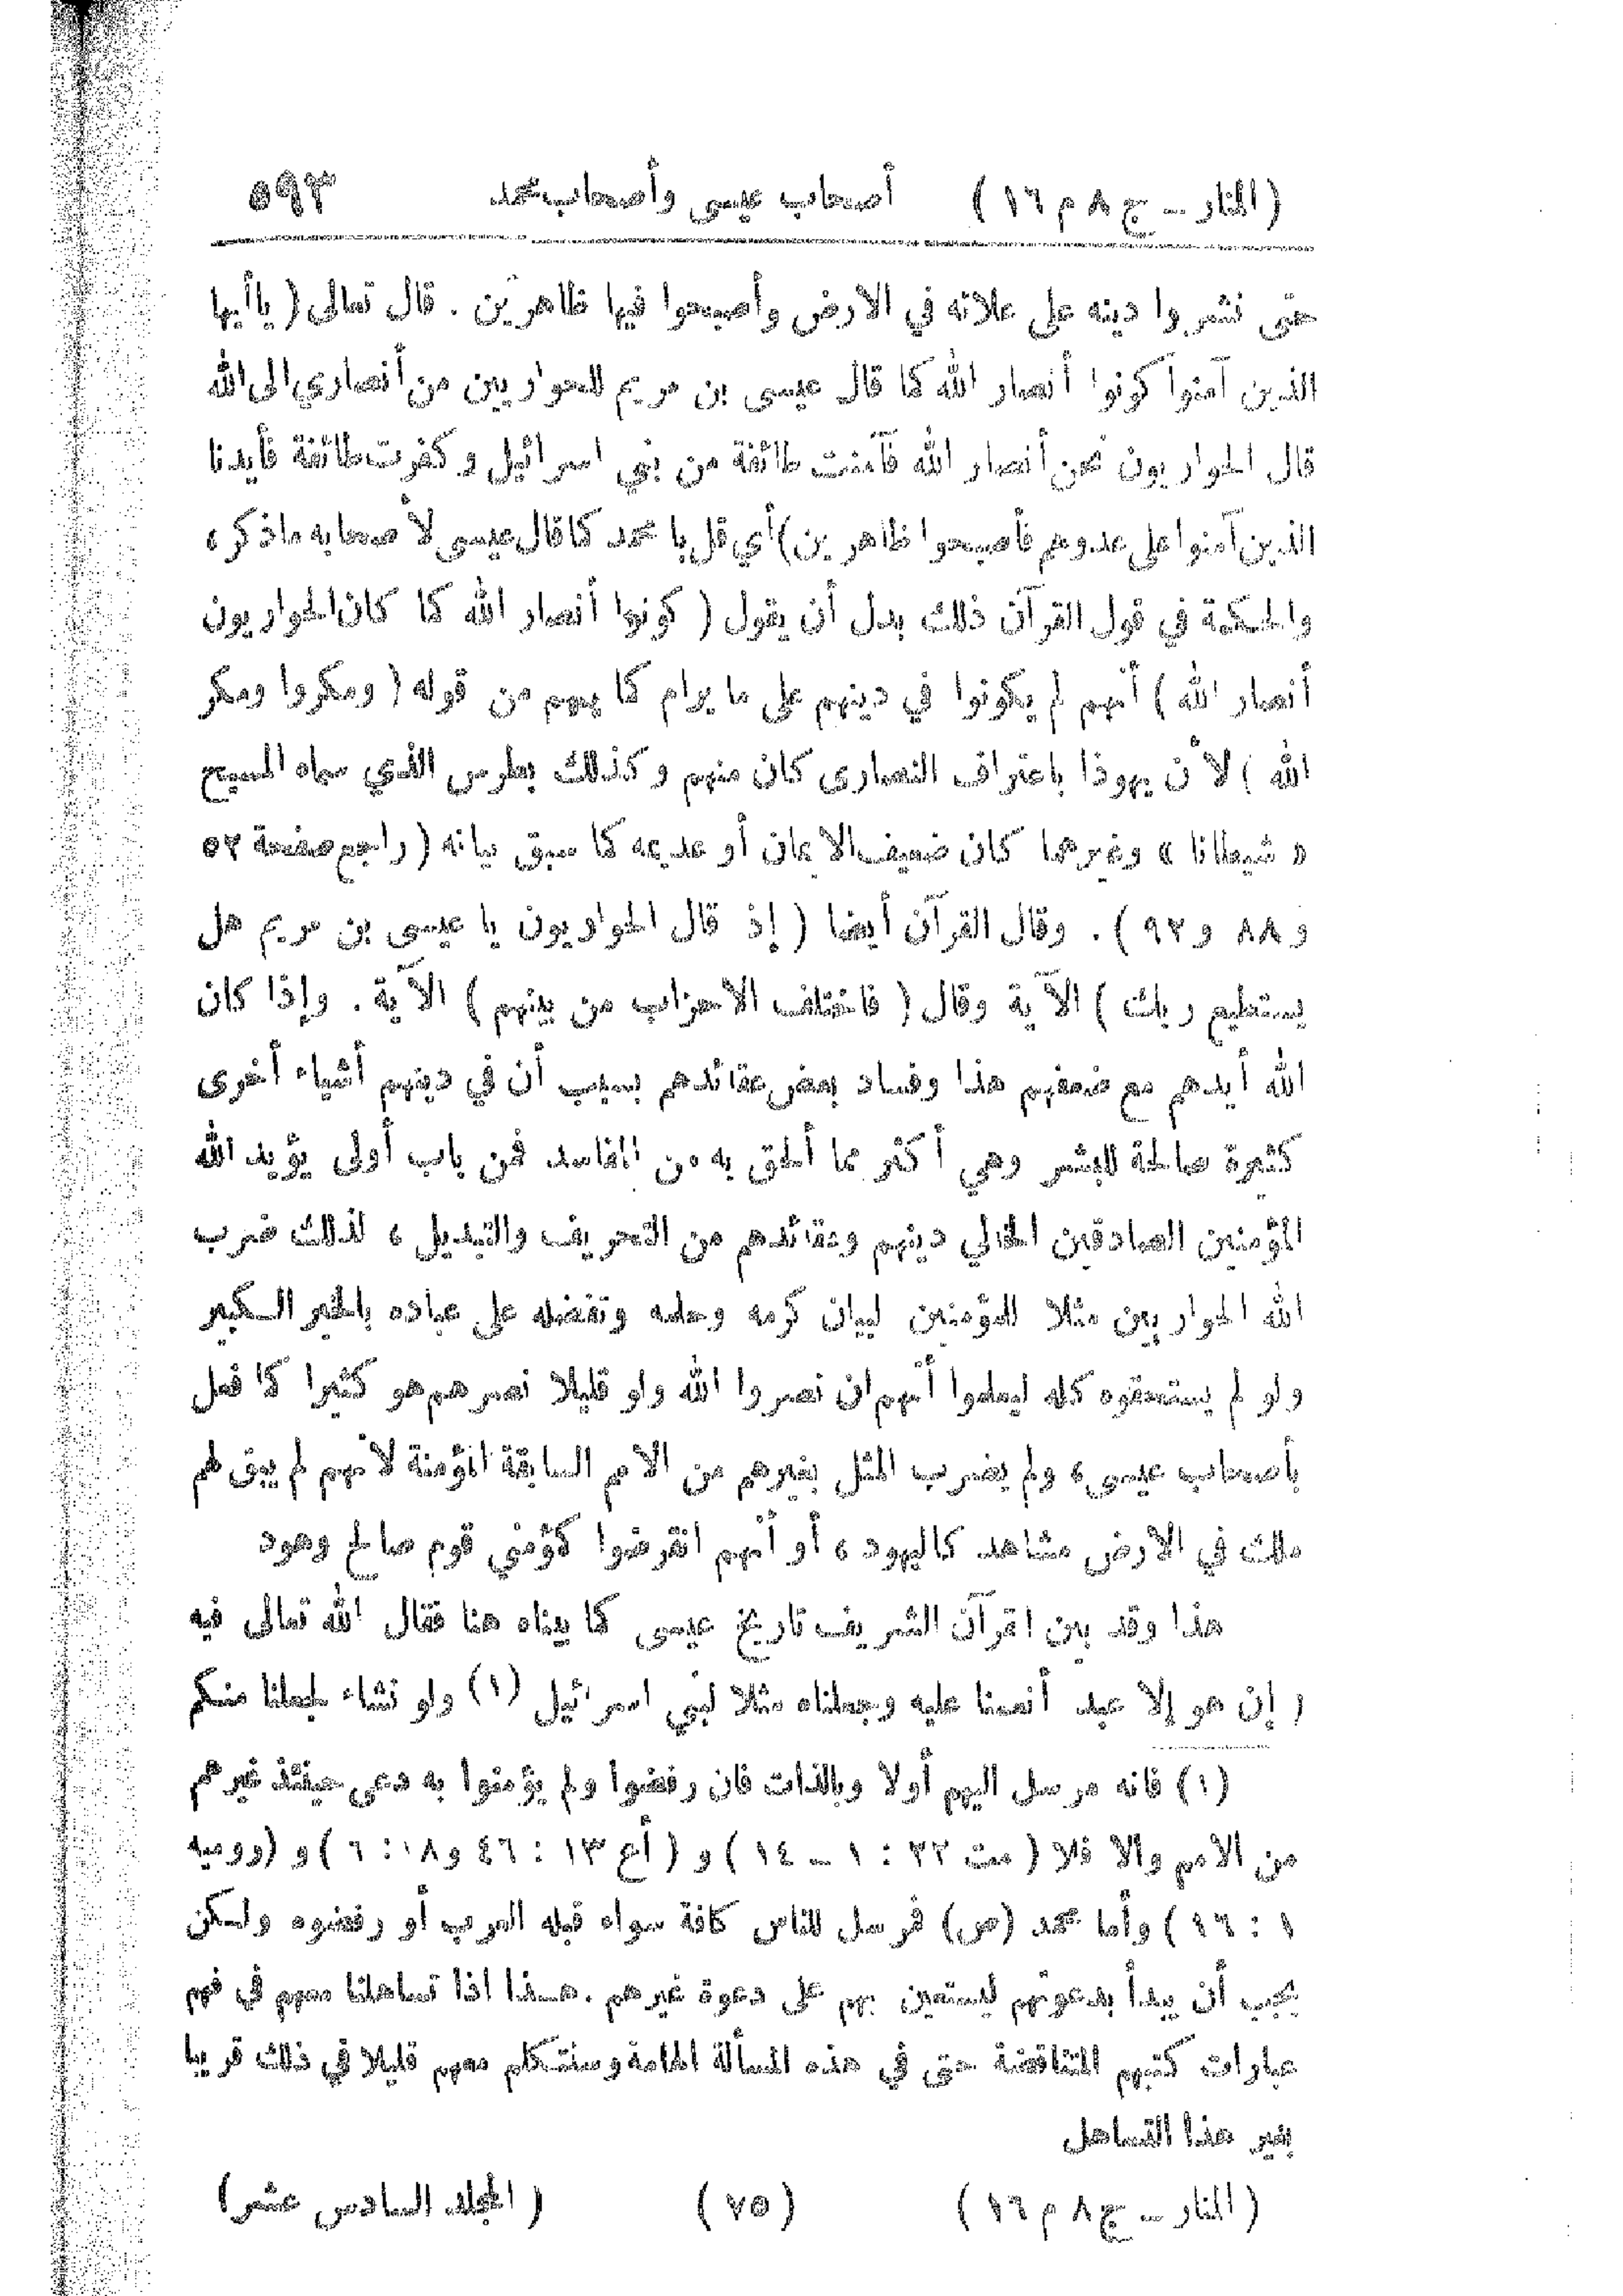 (المنار ــ ج ٨ م ١٦) أصحاب عيسى وأصحاب محمد ٥٩٣
حتى نشروا دينه على علاته في الارض وأصبحوا فيها ظاهرين . قال تعالى ( ياأيها
الذين آمنوا كونوا أنصار الله كما قال عيسى بن مريم للحواريين من أنصاري الى الله
قال الحواريون نحن أنصار الله فآمنت طائفة من بني اسرائيل وكفرت طائفة فأيدنا
الذين آمنوا على عدوهم فأصبحوا ظاهرين) أي قل يا محمد كما قال عيسى لأصحابه ماذكر ،
والحكمة في قول القرآن ذلك بدل أن يقول ( كونوا أنصار الله كما كان الحواريون
أنصار الله ) أنهم لم يكونوا في دينهم على ما يرام كما يفهم من قوله ( ومكروا ومكر
الله ) لأن يهوذا باعتراف النصارى كان منهم وكذلك بطرس الذي سماه المسيح
« شيطانا » وغيرهما كان ضعيف الايمان أو عديمه كما سبق بيانه ( راجع صفحة ٥٢
و ٨٨ و ٩٢ ) . وقال القرآن أيضا ( إذ قال الحواريون يا عيسى بن مريم هل
يستطيع ربك ) الآية وقال ( فاختلف الاحزاب من بينهم ) الآية . وإذا كان
الله أيدهم مع ضعفهم هذا وفساد بعض عقائدهم بسبب أن في دينهم أشياء أخرى
كثيرة صالحة للبشر وهي أكثر مما ألحق به من المفاسد فمن باب أولى يؤيد الله
المؤمنين الصادقين الخالي دينهم وعقائدهم من التحريف والتبديل ، لذلك ضرب
الله الحواريين مثلا للمؤمنين لبيان كرمه وحلمه وتفضله على عباده بالخير الكبير
ولو لم يستحقوه كله ليعلموا أنهم ان نصروا الله ولو قليلا نصرهم هو كثيرا كما فعل
بأصحاب عيسى ، ولم يضرب المثل بغيرهم من الامم السابقة المؤمنة لأنهم لم يبق لهم
ملك في الارض مشاهد كاليهود ، أو أنهم انقرضوا كمؤمني قوم صالح وهود
هذا وقد بين القرآن الشريف تاريخ عيسى كما بيناه هنا فقال الله تعالى فيه
( إن هو إلا عبد أنعمنا عليه وجعلناه مثلا لبني اسرائيل (١) ولو نشاء لجعلنا منكم
(١) فانه مرسل اليهم أولا وبالذات فان رفضوا ولم يؤمنوا به دعى حينئذ غيرهم
من الامم والا فلا ( مت ٢٢ : ١ ــ ١٤ ) و ( أع ١٣ : ٤٦ و ١٨ : ٦ ) و (رومية
١ : ١٦ ) وأما محمد (ص) فمرسل للناس كافة سواء قبله العرب أو رفضوه ولكن
يجب أن يبدأ بدعوتهم ليستعين بهم على دعوة غيرهم . هـذا اذا تساهلنا معهم في فهم
عبارات كتبهم المتناقضة حتى في هذه المسألة الهامة وسنتكلم معهم قليلا في ذلك قريبا
بغير هذا التساهل
(المنار ــ ج ٨ م ١٦) (٧٥) (المجلد السادس عشر)